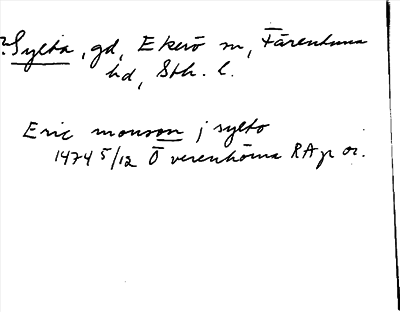 ? Sylta, gd, Ekerö sn, Färentuna
hd, Sth. l.
Eric monson j sylto
1474 5/12 Ö verenhörna RAp or.